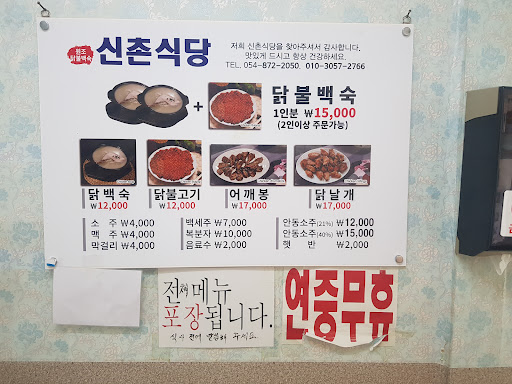 원조
닭불백숙
신촌식당
저희 신촌식당을 찾아주셔서 감사합니다.
맛있게 드시고 항상 건강하세요.
TEL. 054-872-2050, 010-3057-2766
+
닭불백숙
1인분 ₩15,000
(2인이상 주문가능)
닭백숙
₩12,000
닭불고기
₩12,000
어깨봉
₩17,000
닭날개
₩17,000
소 주 ₩4,000
맥 주 ₩4,000
막걸리 ₩4,000
백세주 ₩7,000
복분자 ₩10,000
음료수 ₩2,000
안동소주(21%) ₩12,000
안동소주(40%) ₩15,000
햇 반 ₩2,000
전 메뉴
포장됩니다.
식사 전에 말씀해 주세요
연중무휴